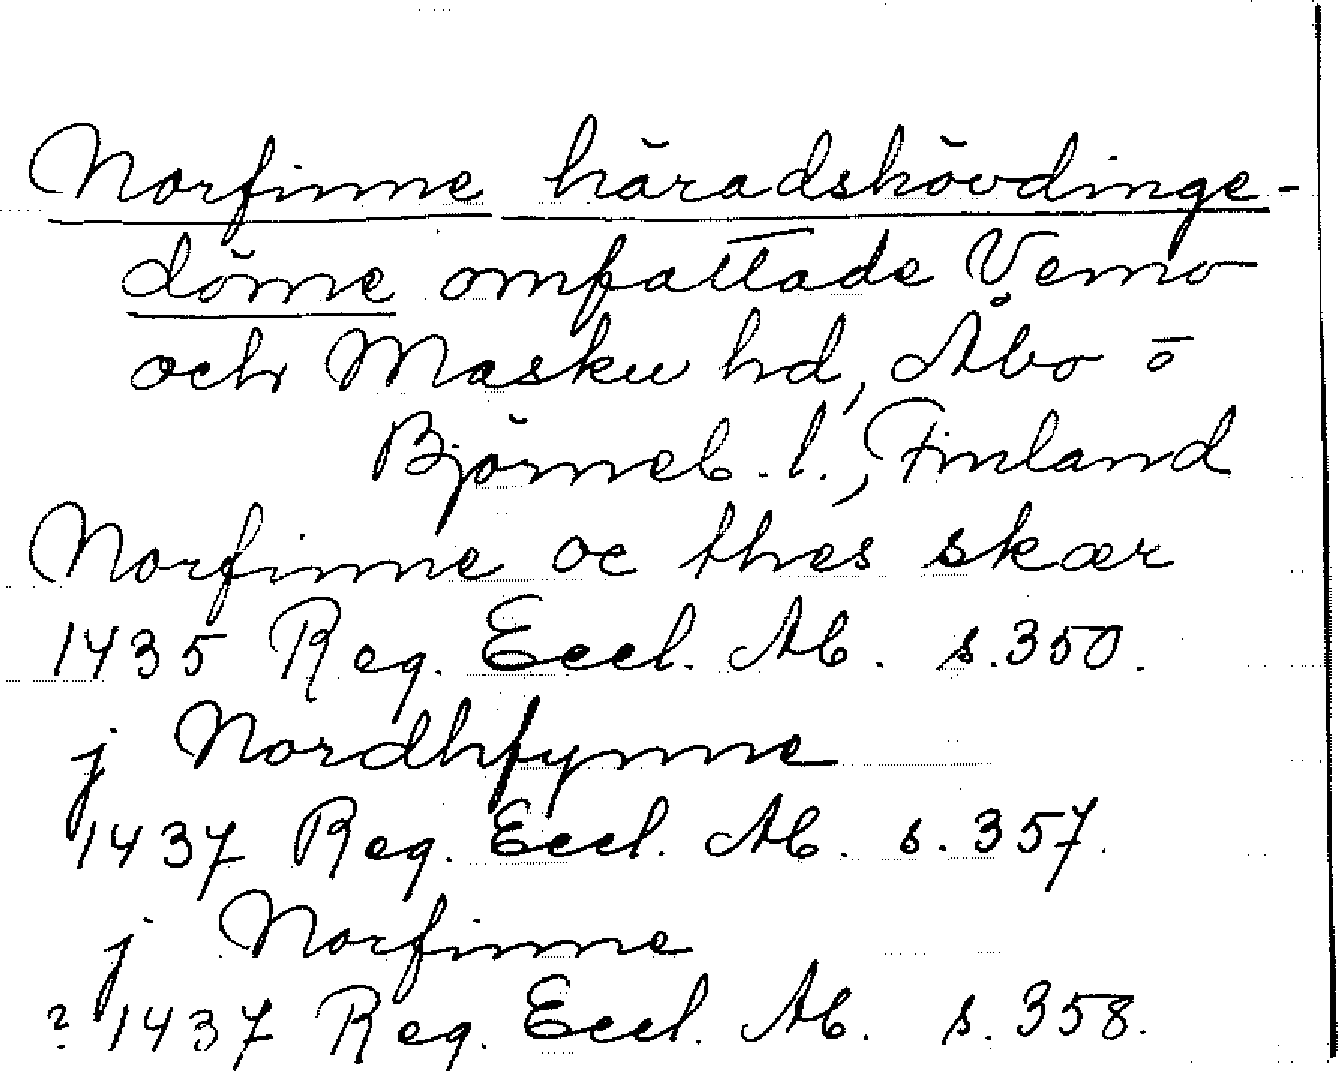 Norfinne häradshövdinge-
döme omfattade Vemo
och Masku hd, Åbo o
Björneb. l., Finland
Norfinne oc thes skær
1435 Reg. Eccl. Ab. s. 350.
j Nordhfynne
1437 Reg. Eccl. Ab. s. 357.
j Norfinne
? 1437 Reg. Eccl. Ab. s. 358.